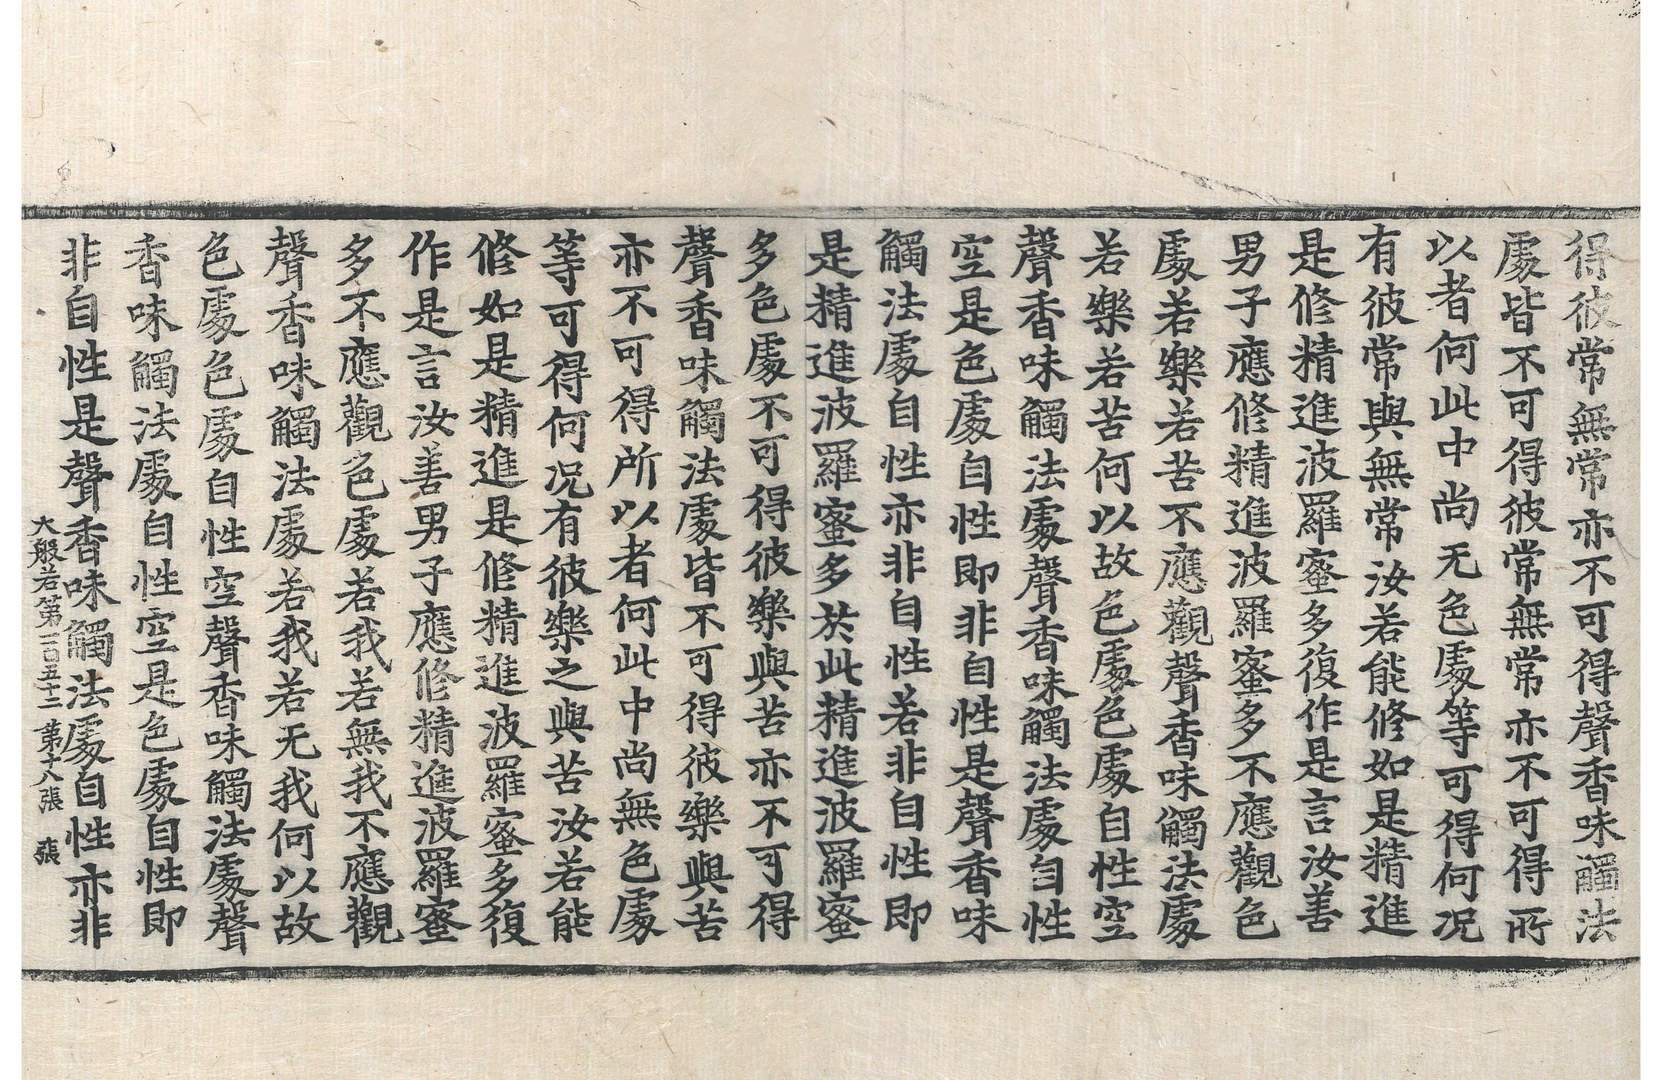 得彼常無常亦不可得聲香味觸法
處皆不可得彼常無常亦不可得所
以者何此中尚无色處等可得何况
有彼常與無常汝若能修如是精進
是修精進波羅蜜多復作是言汝善
男子應修精進波羅蜜多不應觀色
處若樂若苦不應觀聲香味觸法處
若樂若苦何以故色處色處自性空
聲香味觸法處聲香味觸法處自性
空是色處自性即非自性是聲香味
觸法處自性亦非自性若非自性即
是精進波羅蜜多於此精進波羅蜜
多色處不可得彼樂與苦亦不可得
聲香味觸法處皆不可得彼樂與苦
亦不可得所以者何此中尚無色處
等可得何况有彼樂之與苦汝若能
修如是精進是修精進波羅蜜多復
作是言汝善男子應修精進波羅蜜
多不應觀色處若我若無我不應觀
聲香味觸法處若我若无我何以故
色處色處自性空聲香味觸法處聲
香味觸法處自性空是色處自性即
非自性是聲香味觸法處自性亦非
大般若第一百五十二 第十八張 張